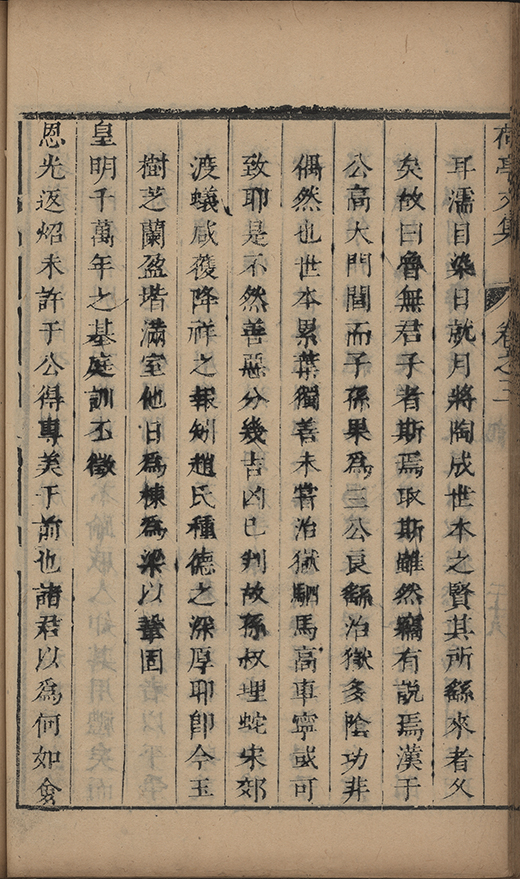 荷亭文集 卷之三
耳濡目染日就月將陶成世本之賢其所繇來者久
矣故曰魯無君子者斯焉取斯雖然竊有說焉漢于
公高大門閭而子孫果為三公良繇治獄多陰功非
偶然也世本累葉獨善未嘗治獄駟馬高車寧或可
致耶是不然善惡分幾吉凶已判故孫叔埋蛇宋郊
渡蟻咸穫降祥之報矧趙氏種德之深厚耶卽今玉
樹芝蘭盈堦滿室他日為棟為梁以鞏固
皇明千萬年之基庭訓丕徵
恩光返炤未許于公得專美于前也諸君以為何如僉